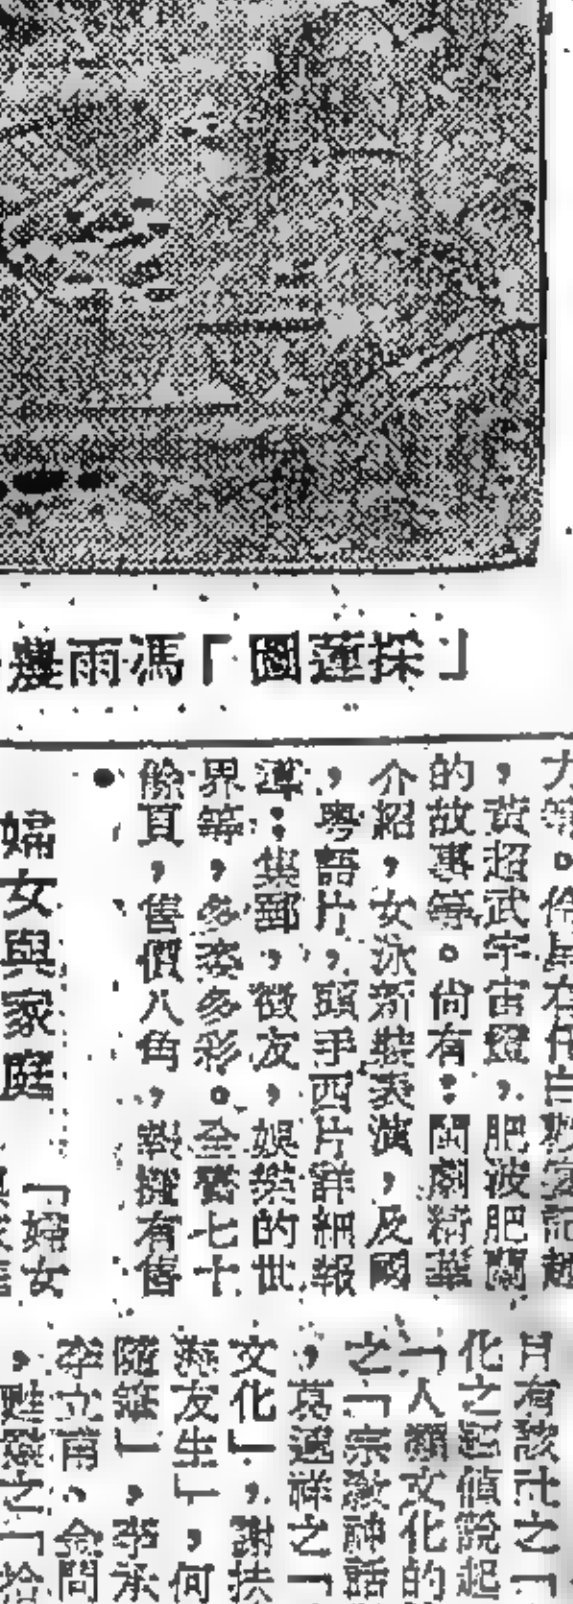 「採蓮圖」馮雨農
力等。伶星在任白
，黃超武宇宙燈，肥波肥蘭
的故事等。尚有：閩劇精華
介紹，女泳新裝表演，及國
，粵語片，頭手西片詳細報
集郵，徵友，娛樂的世
界等，多姿多彩。全書七十
餘頁，售價八角，報攤有售
●婦女與家庭
「婦女
月有該社之「
化之起值說起
「人類文化的
之「宗教神話
，葛連祥之「
文化」，謝扶
友生」，何
隨筆」，李承
李立甫、金問
之「拾